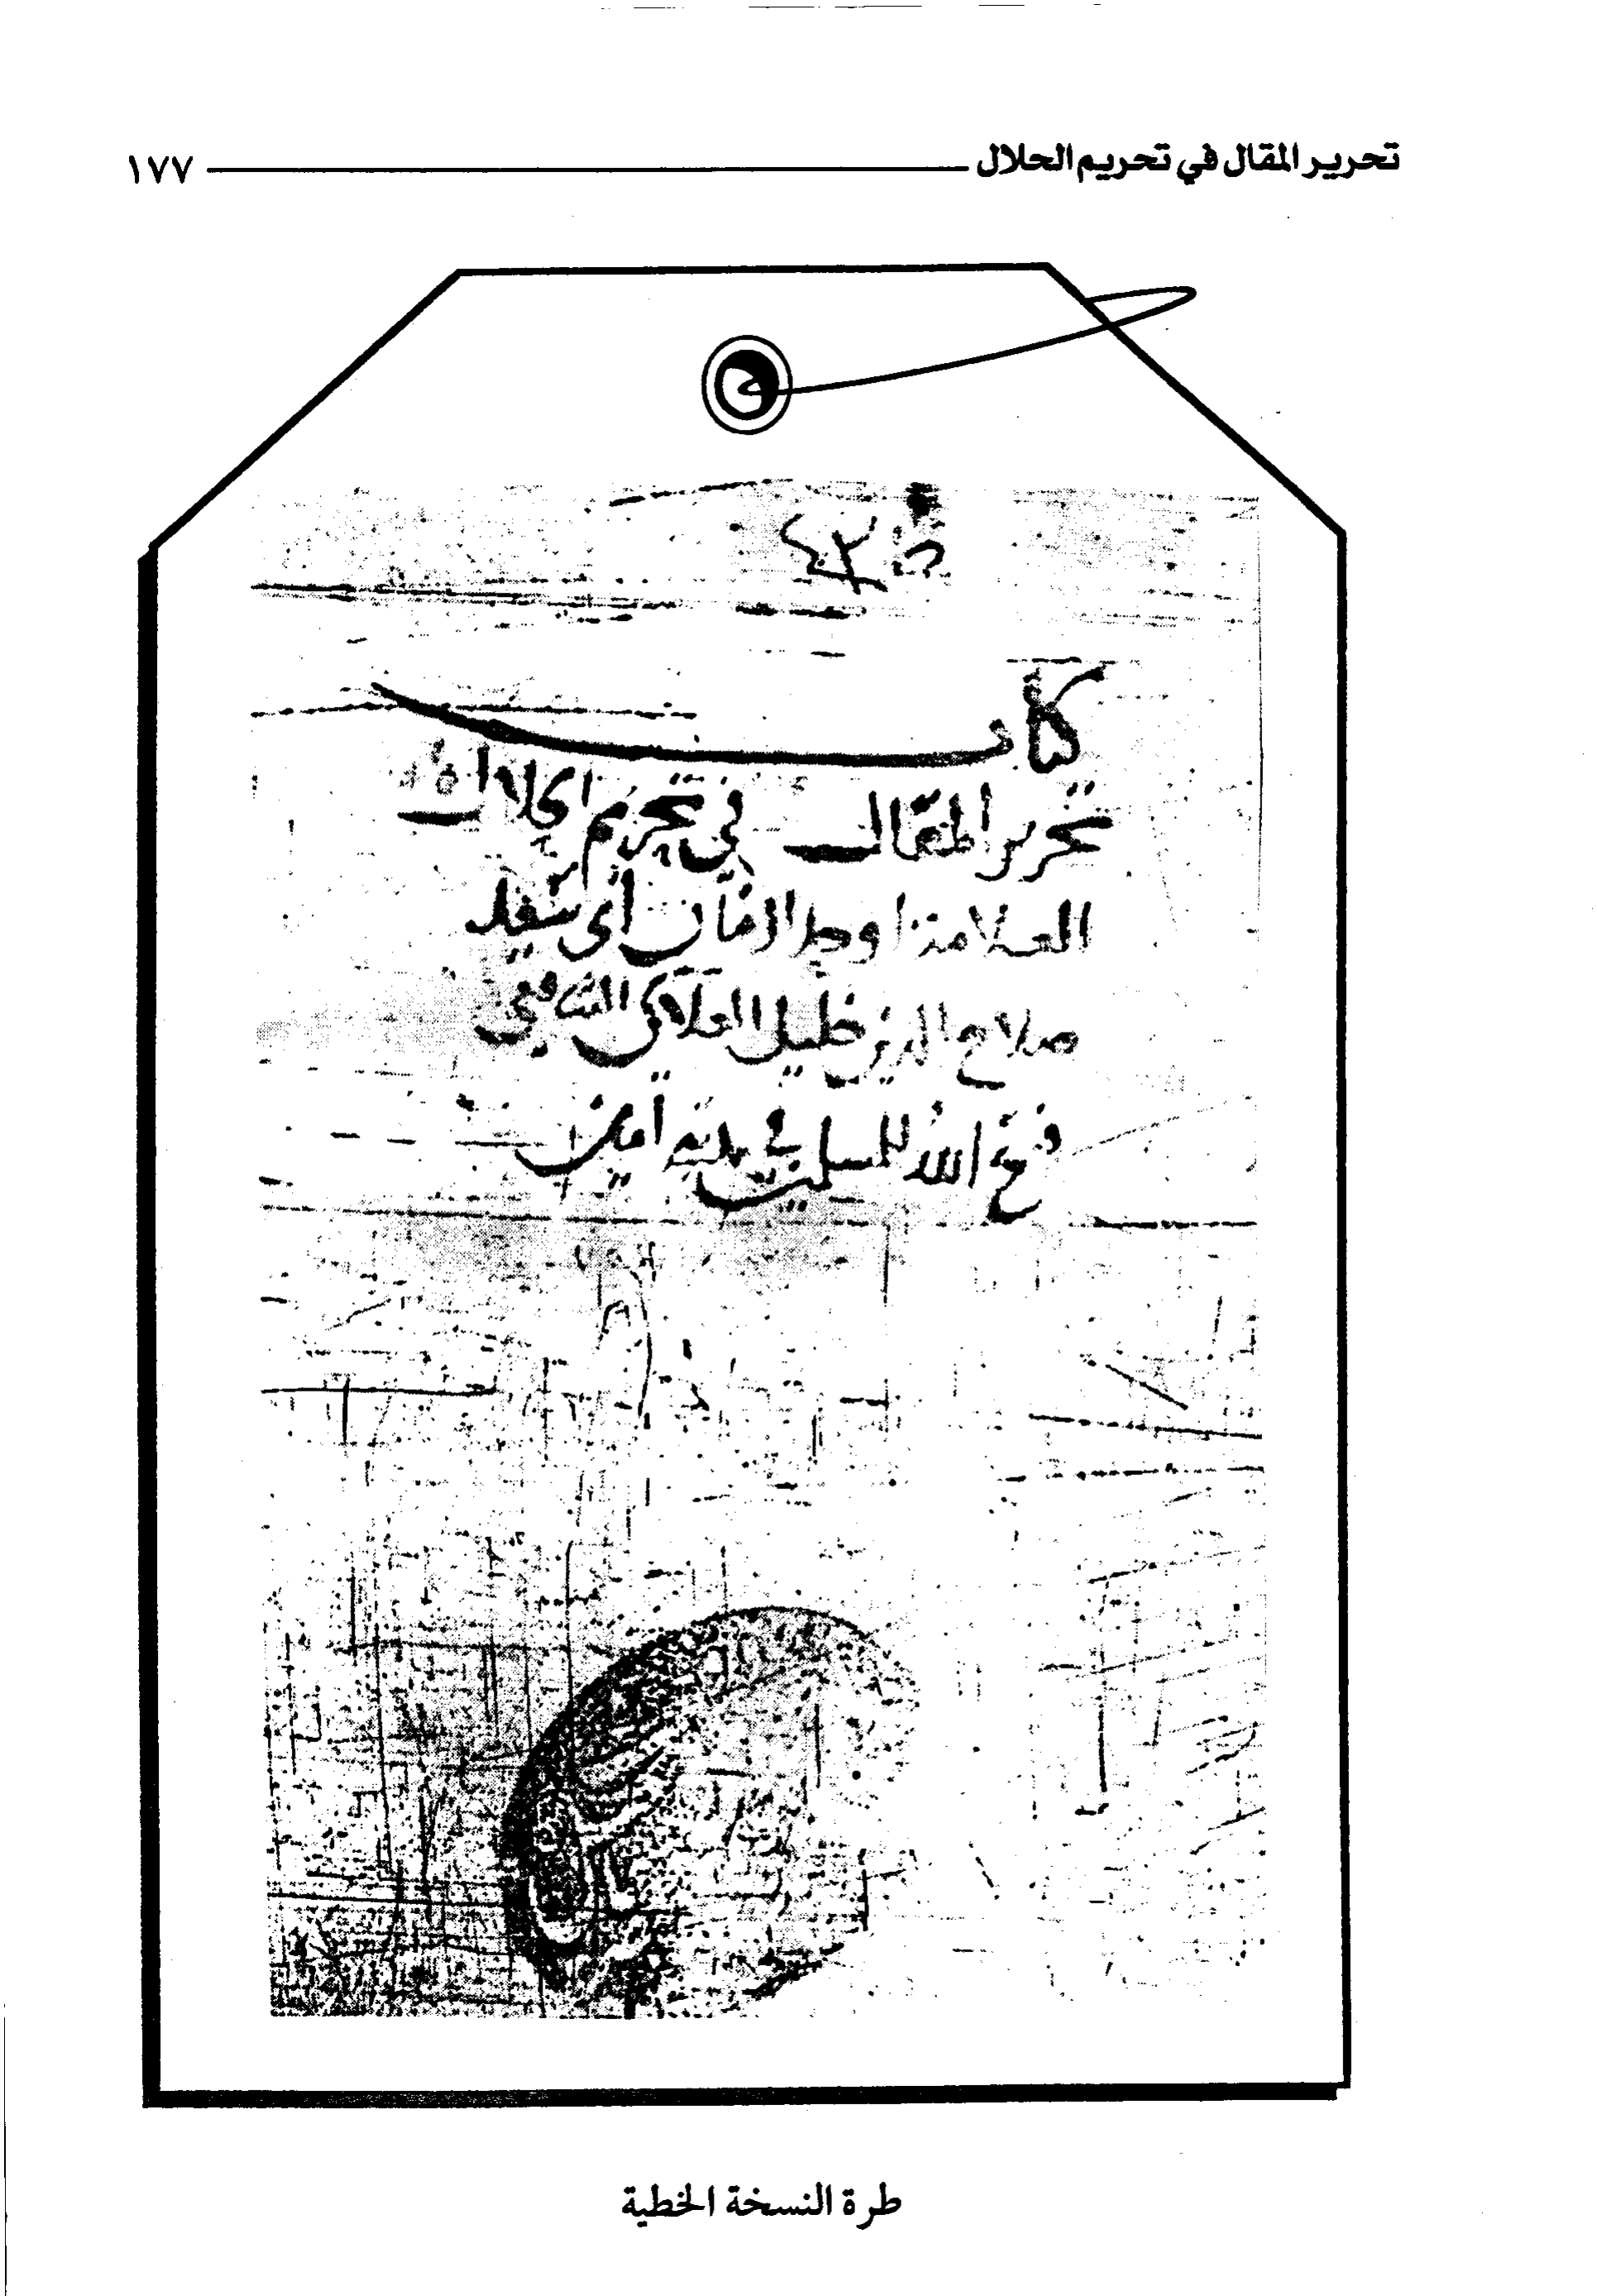 تحرير المقال في تحريم الحلال ١٧٧
كتاب
تحرير المقال في تحريم الحلال
العلامة اوحد الزمان أبي سعيد
صلاح الدين خليل العلائي الشافعي
فسح الله للمسلمين في مدته امين
طرة النسخة الخطية